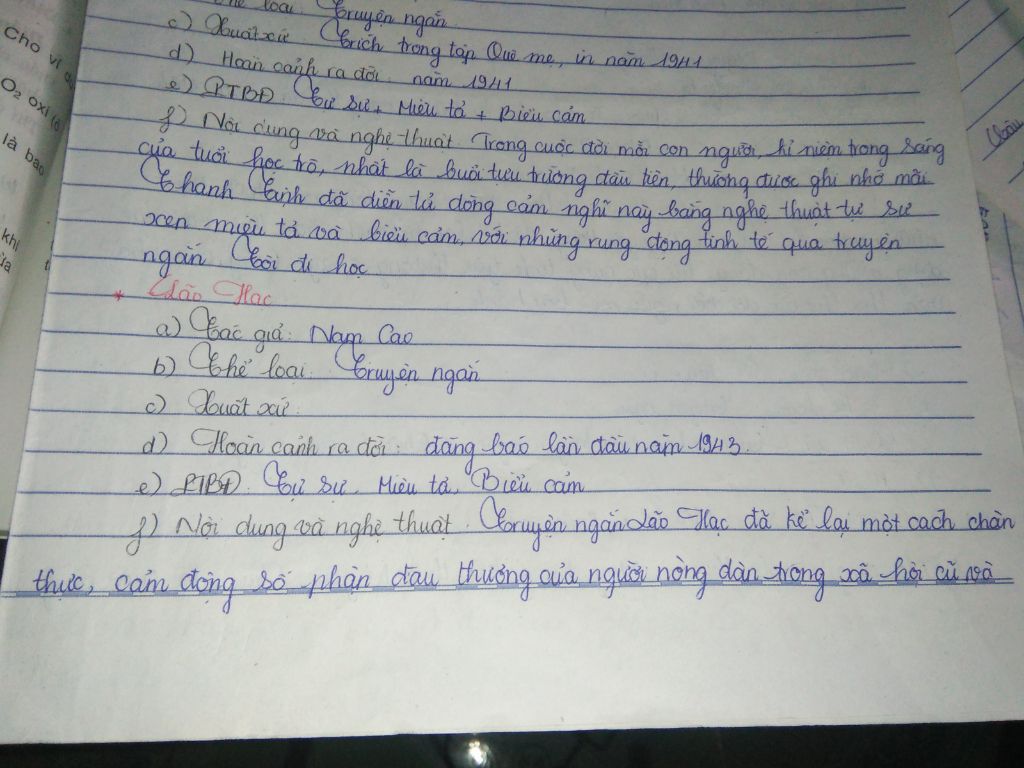 loại: Truyện ngắn
c) Xuất xứ: Trích trong tập Quê mẹ, in năm 1941
d) Hoàn cảnh ra đời: năm 1941
e) PTBĐ: Tự sự + Miêu tả + Biểu cảm
f) Nội dung và nghệ thuật: Trong cuộc đời mỗi con người, kỉ niệm trong sáng
của tuổi học trò, nhất là buổi tựu trường đầu tiên, thường được ghi nhớ mãi.
Thanh Tịnh đã diễn tả dòng cảm nghĩ này bằng nghệ thuật tự sự
xen miêu tả và biểu cảm, với những rung động tinh tế qua truyện
ngắn Tôi đi học
* Lão Hạc
a) Tác giả: Nam Cao
b) Thể loại: Truyện ngắn
c) Xuất xứ:
d) Hoàn cảnh ra đời: đăng báo lần đầu năm 1943.
e) PTBĐ: Tự sự, Miêu tả, Biểu cảm
f) Nội dung và nghệ thuật: Truyện ngắn Lão Hạc đã kể lại một cách chân
thực, cảm động số phận đau thương của người nông dân trong xã hội cũ và
Cho ví
O₂ oxi
là bao
khi